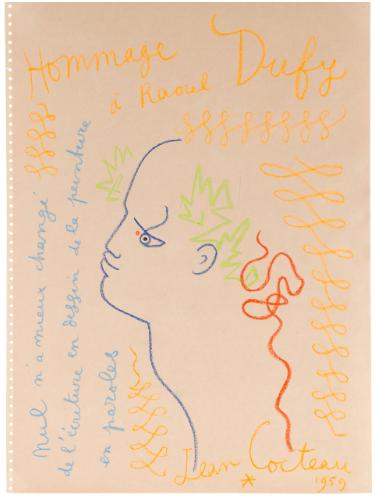 Hommage
à Raoul
Dufy
Nul n'a mieux changé
de l'écriture en dessin de la peinture
en paroles
Jean Cocteau
*
1959